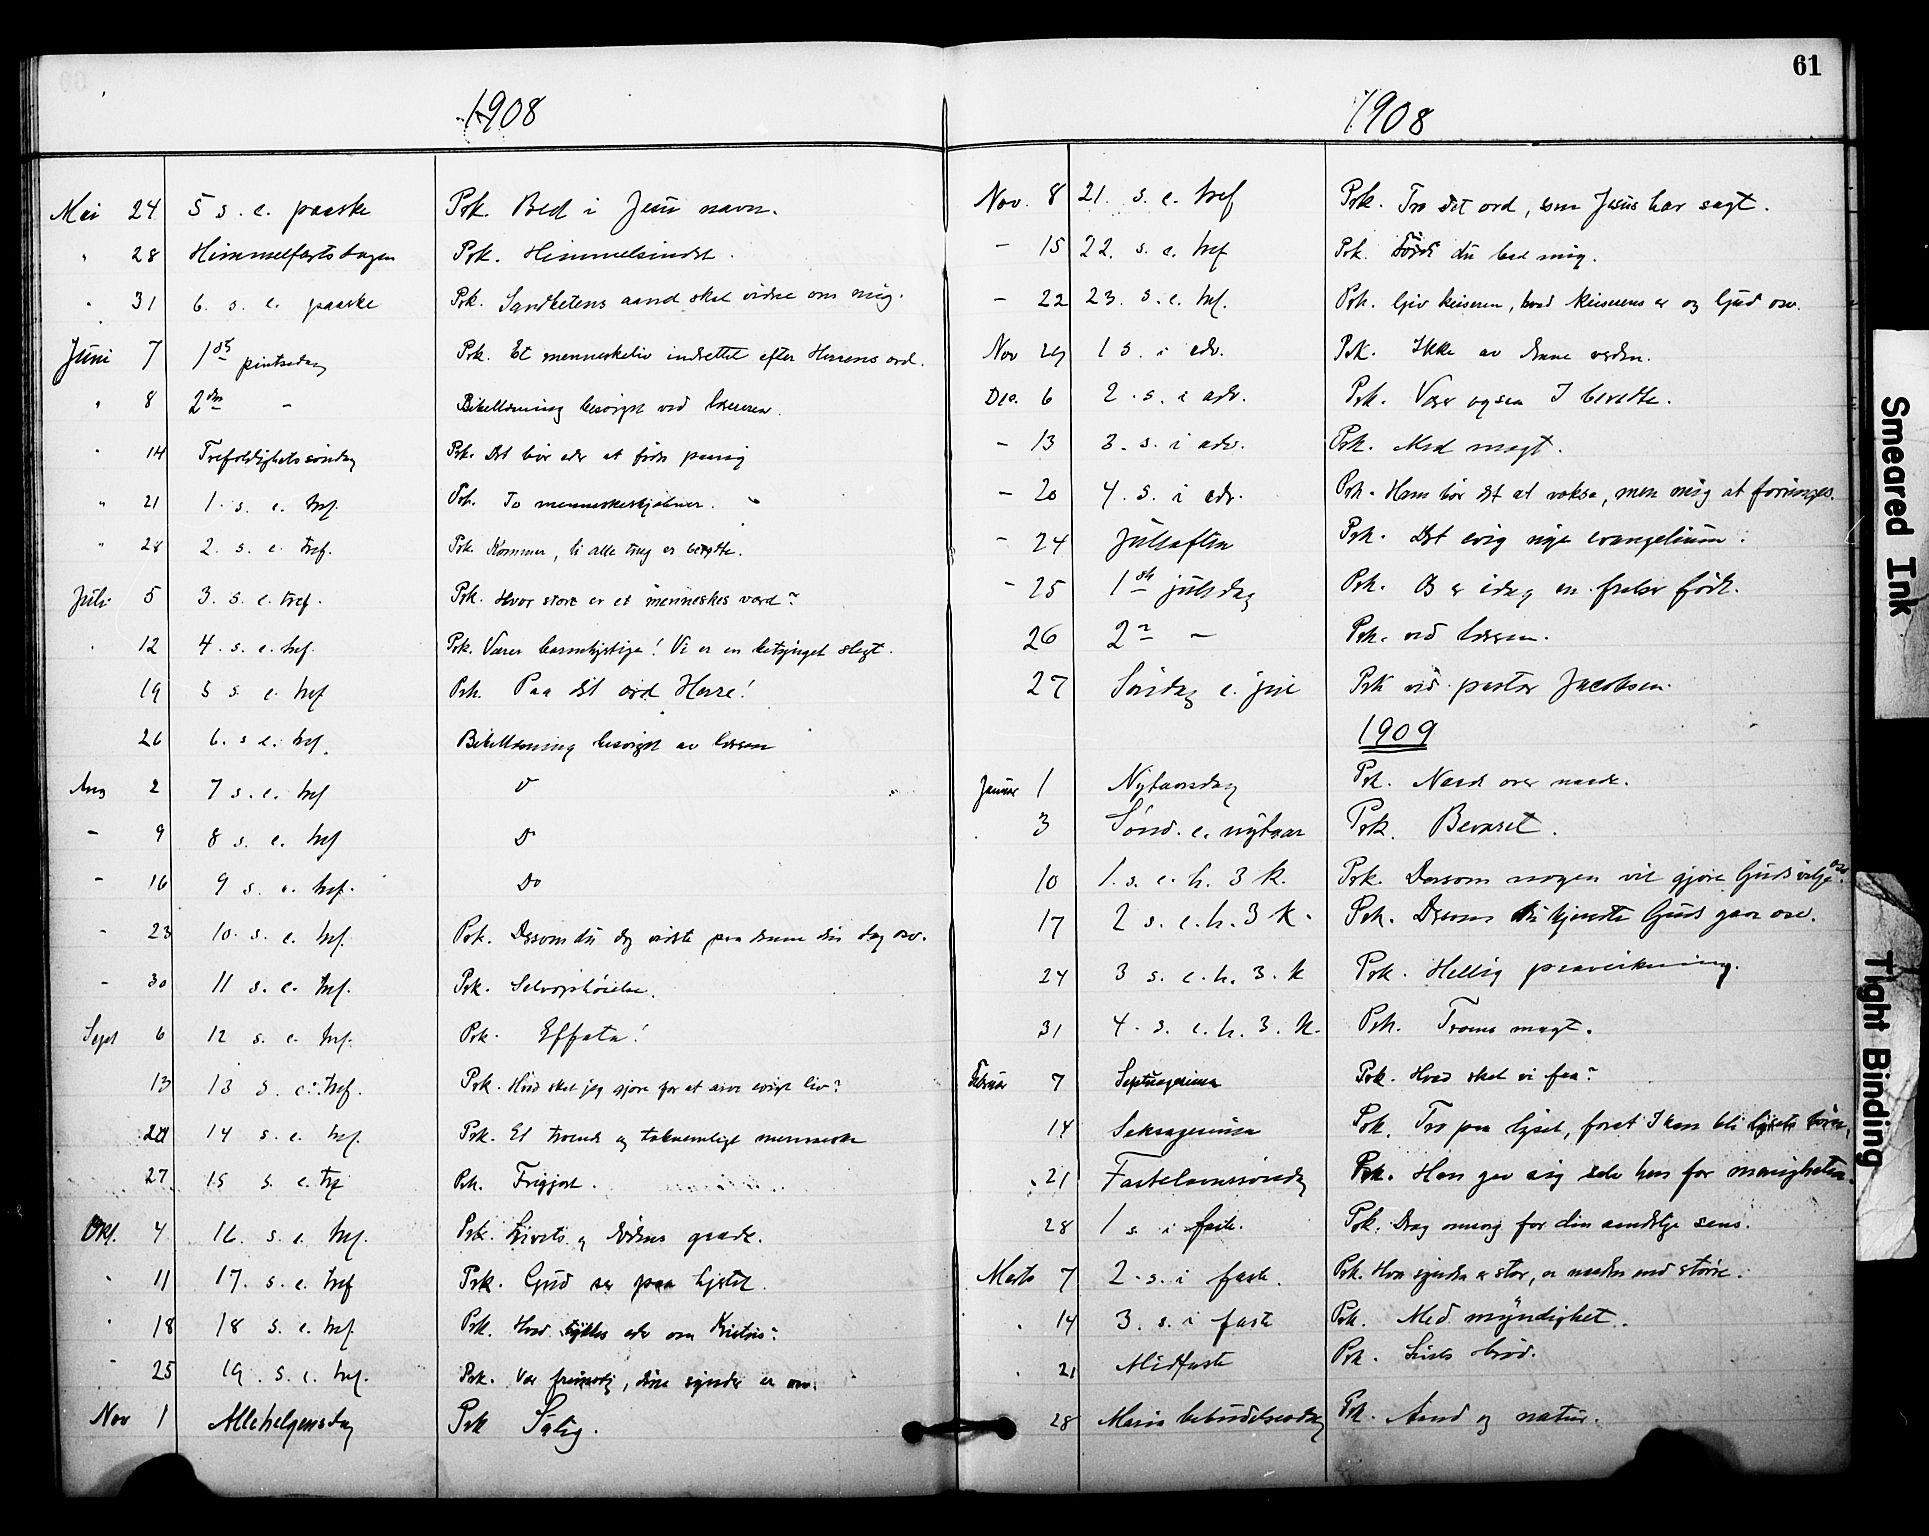 61
1908
Mai 24 5 s. e. paaske Prk. Bed i Jesu navn.
" 28 Himmelfartsdagen Prk. Himmelsindet.
" 31 6. s. e. paaske Prk. Sandhetens aand skal vidne om mig.
Juni 7 1ste pintsedag Prk. Et menneskeliv indrettet efter Herrens ord.
" 8 2den - Bibellæsning besørget ved læreren.
" 14 Trefoldighetssøndag Prk. Det bør eder at fødes paany
" 21 1. s. e. tref. Prk. To menneskeskjæbner.
" 28 2. s. e. tref. Prk. Kommer, ti alle ting er beredte.
Juli 5 3. s. e. tref. Prk. Hvor stort er et menneskes værd?
" 12 4. s. e. tref. Prk. Værer barmhjertige! Vi er en betynget slegt.
19 5 s. e. tref Prk. Paa dit ord Herre!
26 6. s e. tref. Bibellæsning besørget av læreren
Aug 2 7 s. e. tref Do
- 9 8 s. e. tref Do
- 16 9 s. e. tref. Do
- 23 10. s. e. tref. Prk. Dersom du dog vidste paa denne din dag osv.
- 30 11 s. e. tref. Prk. Selvophøielse.
Sept 6 12 s. e. tref. Prk. Effata!
13 13 s. e. tref. Prk. Hvad skal jeg gjøre for at arve evigt liv?
20 14 s. e. tref. Prk. Et troende og taknemligt menneske
27 15 s. e. tref Prk. Frigjort.
Okt. 4 16. s. e. tref. Prk. Livets og dødens gaade.
" 11 17. s. e. tref Prk. Gud ser paa hjertet.
" 18 18 s. e. tref. Prk. Hvad tykkes eder om Kristus?
" 25 19. s. e. tref. Prk. Vær frimodig, dine synder er osv.
Nov 1 Allehelgensdag Prk Salig.
1908
Nov. 8 21. s. e. tref Prk. Tro det ord, som Jesus har sagt.
- 15 22. s. e. tref Prk. du bad mig.
- 22 23. s. e. tref. Prk. Giv keiseren, hvad keiserens er og Gud osv.
Nov 29 1 s. i adv. Prk. Ikke av denne verden.
Dec. 6 2. s. i adv. Prk. Vær ogsaa I beredte.
- 13 3. s. i adv. Prk. Med magt.
- 20 4. s. i adv. Prk. Ham bør det at vokse, men mig at forringes.
- 24 Julaften Prk. Det evig nye evangelium.
- 25 1ste juledag Prk. Der er idag en frelser født.
26 2n - Prk. ved læreren.
27 Søndag e. jul Prk ved pastor Jacobsen
1909
Januar 1 Nytaarsdag Prk. Naade over naade.
3 Sønd. e. nytaar Prk. Bevaret.
10 1. s. e. h. 3 k. Prk. Dersom nogen vil gjøre Guds vilje osv.
17 2 s. e. h. 3 k. Prk. Dersom du kjendte Guds gave osv.
24 3 s. e. h. 3. k Prk. Hellig paavirkning.
31 4. s. e. h. 3. k. Prk. Troens magt.
Februar 7 Septuagesima Prk. Hvad skal vi faa?
14 Seksagesima Prk. Tro paa lyset, forat I kan bli lysets børn.
21 Fastelavnssøndag Prk. Han gav sig selv hen for menigheten.
28 1 s. i faste. Prk. Drag omsorg for din aandelige sans.
Marts 7 2. s. i faste. Prk. Hvor synden er stor, er naaden end større.
14 3. s. i faste Prk. Med myndighet.
21 Midfaste Prk. Livets brød.
28 Maria bebudelsesdag Prk. Aand og natur.
Smeared Ink
Tight Binding